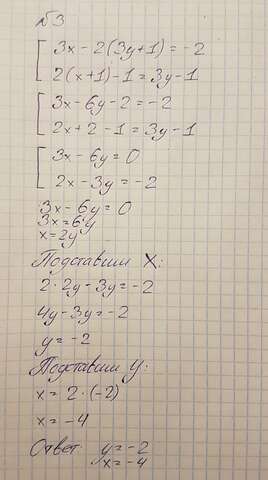 №3
3x-2(3y+1)=-2
2(x+1)-1=3y-1
3x-6y-2=-2
2x+2-1=3y-1
3x-6y=0
2x-3y=-2
3x-6y=0
3x=6y
x=2y
Подставим X:
2·2y-3y=-2
4y-3y=-2
y=-2
Подставим y:
x=2·(-2)
x=-4
Ответ y=-2
x=-4